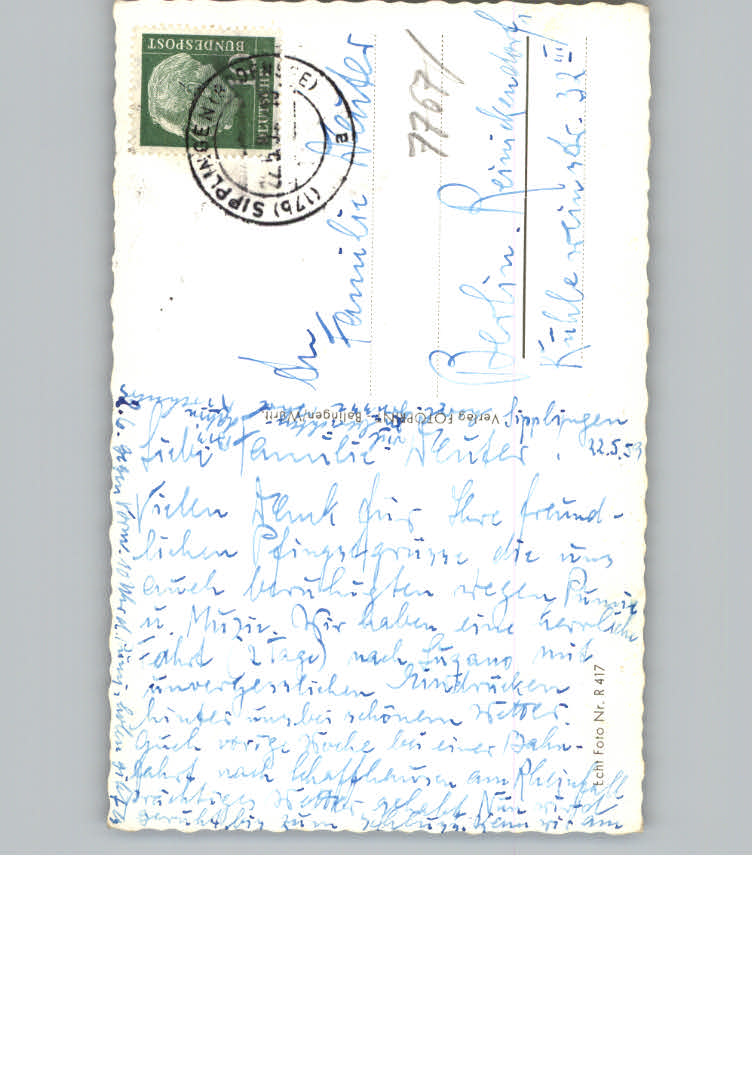 BUNDESPOST
(17b) SIPPLINGEN
E
7767/
An
Familie Deuter
Berlin-Reinickendorf
Kühleweinstr. 32 III
Verlag FOTOPRINT - Balingen/Württ.
Echt Foto Nr. R 417
Sipplingen
22.5.59
Liebe Familie Deuter!
Vielen Dank für Ihre freund-
lichen Pfingstgrüsse die uns
auch beruhigten wegen
u. Wir haben eine herrliche
Fahrt (2 Tage) nach Lugano mit
unvergesslichen Eindrücken
hinter uns bei schönem Wetter.
Auch vorige Woche bei einer Bahn-
fahrt nach Schaffhausen am Rheinfall
prächtiges Wetter gehabt. Nun wird
geruht bis zum Schluss. Wenn wir am
2.6. gegen Vorm. 10 Uhr